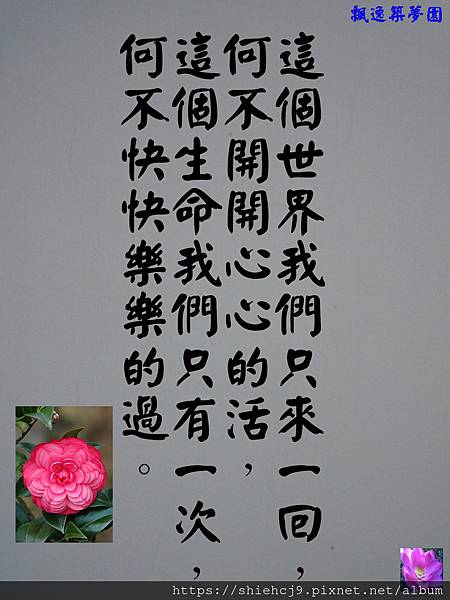 飄逸築夢園
這個世界我們只來一回，
何不開開心心的活，
這個生命我們只有一次，
何不快快樂樂的過。
https://shiehcj9.pixnet.net/album